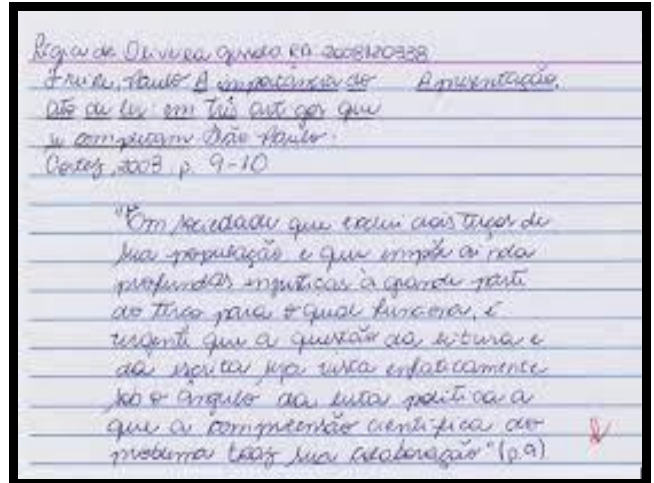 Regia de Oliveira RA 2008120338
Freire, Paulo A importância do Apresentação.
ato de ler: em três artigos que
se completam São Paulo.
Cortez, 2003 p. 9-10
"Em sociedade que exclui dois terços de
sua população e que impõe ainda
profundas injustiças à grande parte
do terço para o qual funciona, é
urgente que a questão da leitura e
da escrita seja vista enfaticamente
sob o ângulo da luta política a
que a compreensão científica do
problema traz sua colaboração" (p.9)